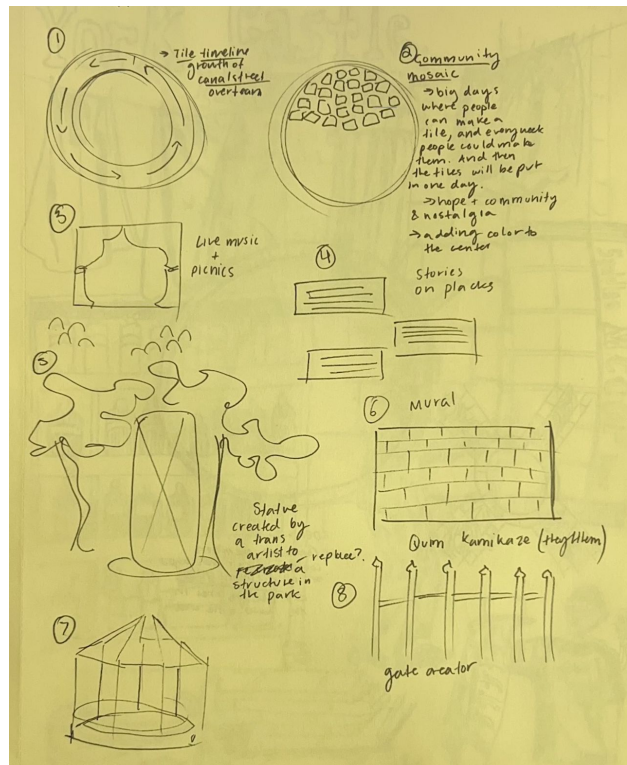 1
→ Tile timeline
growth of
canal street
over tears
2 Community
mosaic
→ big days
where people
can make a
tile, and every week
people could make
them. And then
the tiles will be put
in one day.
→ hope + community
& nostalgia
→ adding color to
the center
3
Live music
+
picnics
4
Stories
on placks
5
Statue
created by
a trans
artist to
replace?
a
structure in
the park
6 Mural
7
Quim Kamikaze (they/them)
8
gate creator